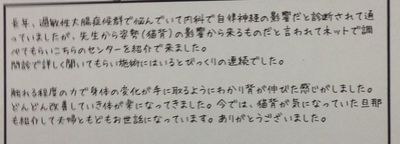 長年、過敏性大腸症候群で悩んでいて内科で自律神経の影響だと診断されて通
っていましたが、先生から姿勢(猫背)の影響から来るものだと言われてネットで調
べてもらいこちらのセンターを紹介で来ました。
問診で詳しく聞いてもらい施術にはいるとびっくりの連続でした。
触れる程度の力で身体の変化が手に取るようにわかり背が伸びた感じがしました。
どんどん改善していき体が楽になってきました。今では、猫背が気になっていた旦那
も紹介して夫婦ともどもお世話になっています。ありがとうございました。